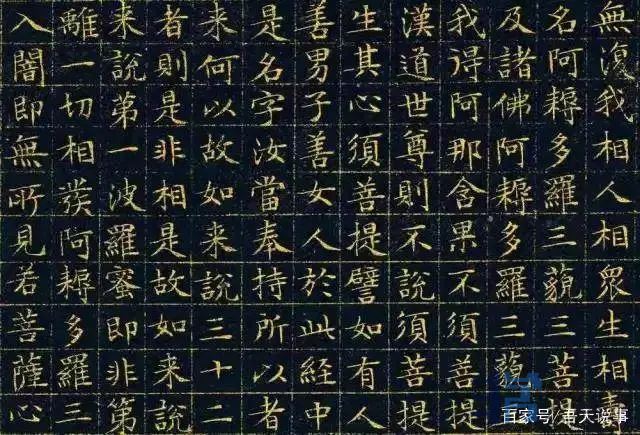 無復我相人相眾生相壽
名阿耨多羅三藐三菩
及諸佛阿耨多羅三藐
我得阿那含果不須菩提
漢道世尊則不說須菩提
生其心須菩提譬如有人
善男子善女人於此經中
是名字汝當奉持所以者
来何以故如来說三十二
者則是非相是故如来說
来說第一波羅蜜即非第
離一切相發阿耨多羅三
入闇即無所見若菩薩心
百家号/春天说事